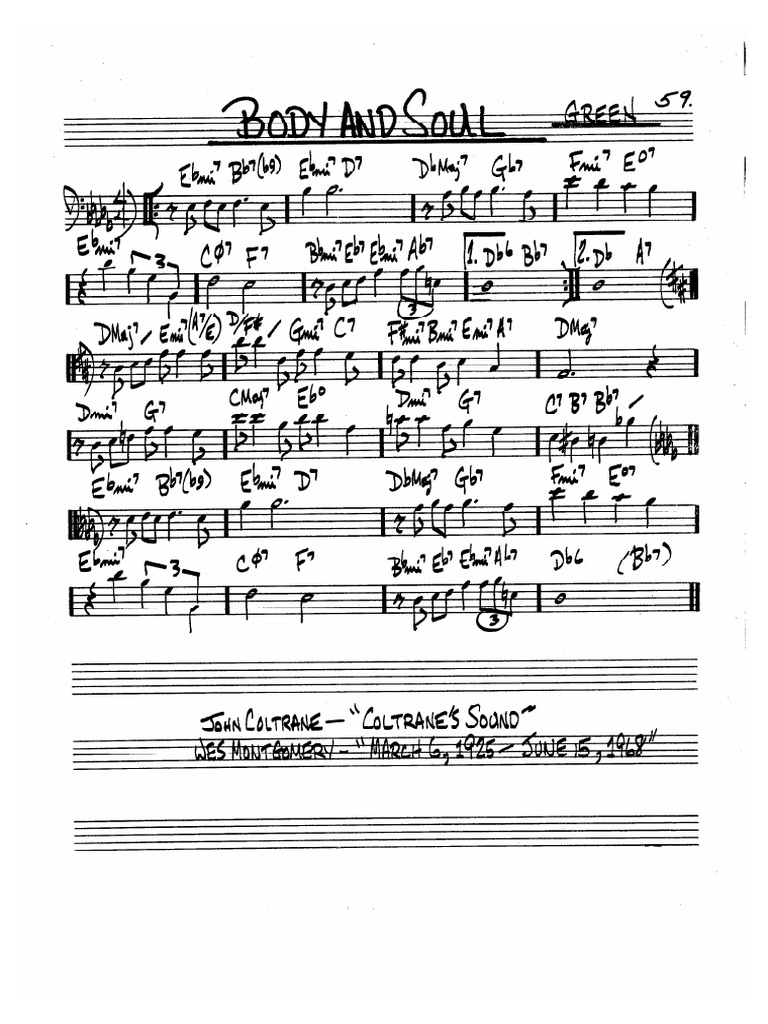 BODY AND SOUL GREEN 59.
Ebmi7 Bb7(b9) Ebmi7 D7 DbMaj7 Gb7 Fmi7 Eo7
Ebmi7 3 Cø7 F7 Bbmi7 Eb7 Ebmi7 Ab7 1. Db6 Bb7 2. Db A7
3
DMaj7 / Emi7 (A7/E) D/F# / Gmi7 C7 F#mi7 Bmi7 Emi7 A7 DMaj7
Dmi7 G7 CMaj7 Ebo Dmi7 G7 C7 B7 Bb7 /
Ebmi7 Bb7(b9) Ebmi7 D7 DbMaj7 Gb7 Fmi7 Eo7
Ebmi7 3 Cø7 F7 Bbmi7 Eb7 Ebmi7 Ab7 Db6 (Bb7)
3
JOHN COLTRANE — "COLTRANE'S SOUND"
WES MONTGOMERY — "MARCH 6, 1925 — JUNE 15, 1968"